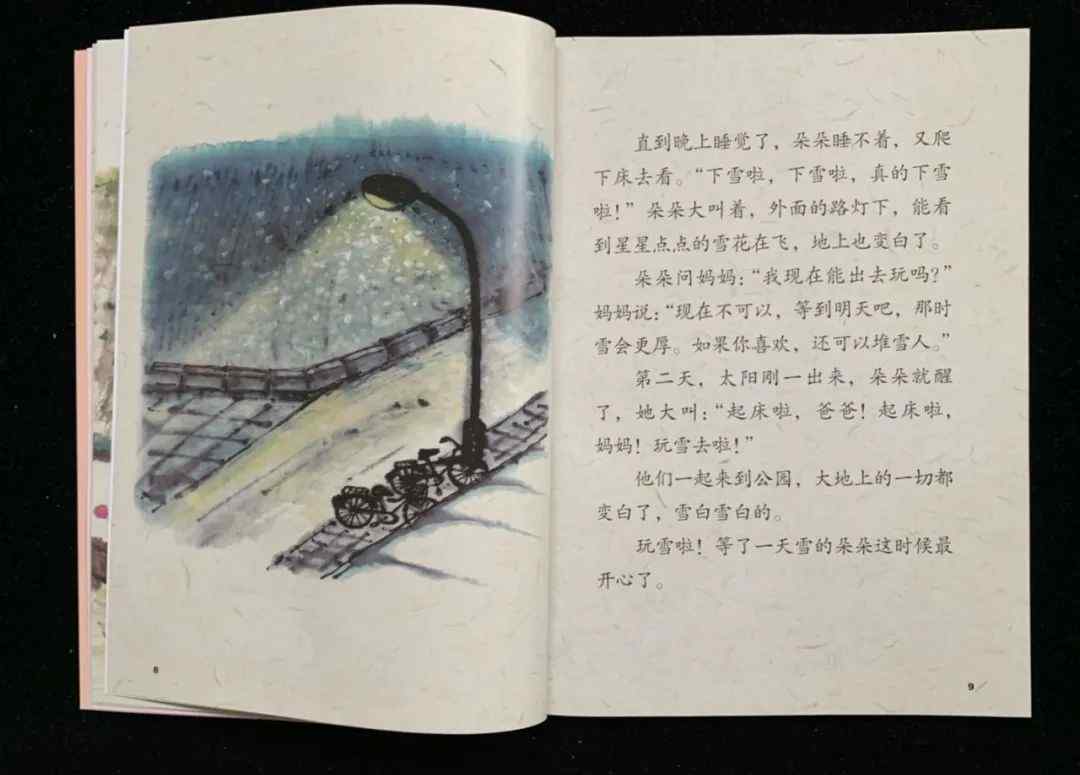 直到晚上睡觉了，朵朵睡不着，又爬
下床去看。“下雪啦，下雪啦，真的下雪
啦！”朵朵大叫着，外面的路灯下，能看
到星星点点的雪花在飞，地上也变白了。
朵朵问妈妈：“我现在能出去玩吗？”
妈妈说：“现在不可以，等到明天吧，那时
雪会更厚。如果你喜欢，还可以堆雪人。”
第二天，太阳刚一出来，朵朵就醒
了，她大叫：“起床啦，爸爸！起床啦，
妈妈！玩雪去啦！”
他们一起来到公园，大地上的一切都
变白了，雪白雪白的。
玩雪啦！等了一天雪的朵朵这时候最
开心了。
8
9